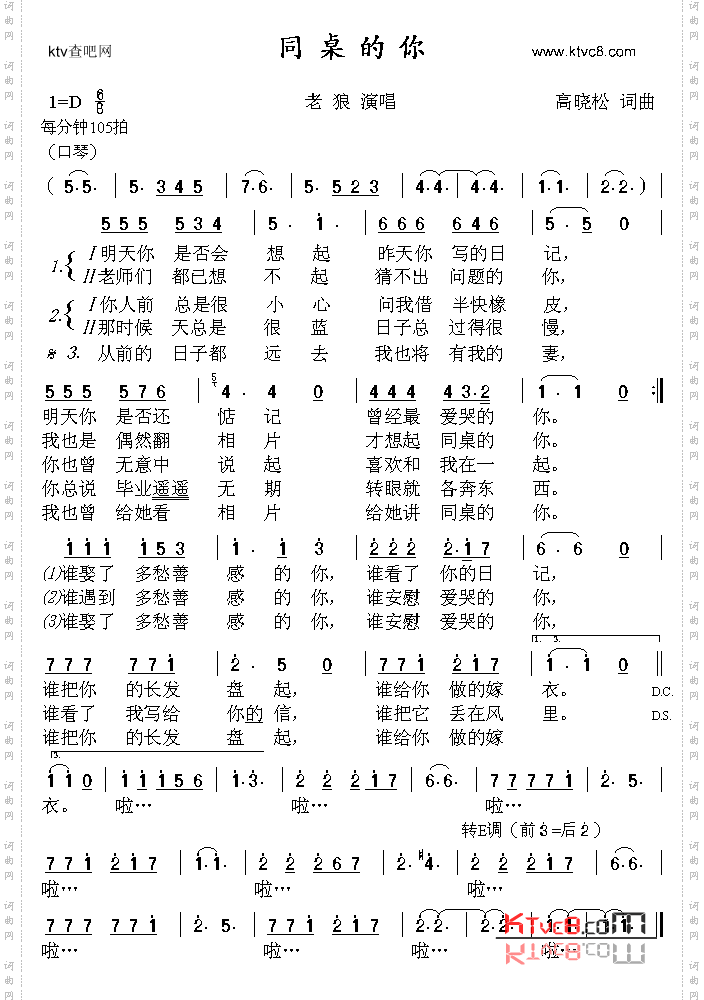 ktv查吧网 同桌的你 www.ktvc8.com
1=D 6/8 老狼 演唱 高晓松 词曲
每分钟105拍
（口琴）
( 5·5· | 5· 3 4 5 | 7·6· | 5· 5 2 3 | 4·4· | 4·4· | 1·1· | 2·2· )
5 5 5 5 3 4 | 5 · 1 · | 6 6 6 6 4 6 | 5 · 5 0 |
1. I 明天你 是否会 想 起 昨天你 写的日 记，
II 老师们 都已想 不 起 猜不出 问题的 你，
2. I 你人前 总是很 小 心 问我借 半快橡 皮，
II 那时候 天总是 很 蓝 日子总 过得很 慢，
3. 从前的 日子都 远 去 我也将 有我的 妻，
5 5 5 5 7 6 | 5 4 · 4 0 | 4 4 4 4 3·2 | 1 · 1 0 :||
明天你 是否还 惦 记 曾经最 爱哭的 你。
我也是 偶然翻 相 片 才想起 同桌的 你。
你也曾 无意中 说 起 喜欢和 我在一 起。
你总说 毕业遥遥 无 期 转眼就 各奔东 西。
我也曾 给她看 相 片 给她讲 同桌的 你。
1 1 1 1 5 3 | 1 · 1 3 | 2 2 2 2·1 7 | 6 · 6 0 |
(1)谁娶了 多愁善 感 的 你，谁看了 你的日 记，
(2)谁遇到 多愁善 感 的 你，谁安慰 爱哭的 你，
(3)谁娶了 多愁善 感 的 你，谁安慰 爱哭的 你，
1. 3.
7 7 7 7 7 1 | 2 · 5 0 | 7 7 7 2 1 7 | 1 · 1 0 ||
谁把你 的长发 盘 起， 谁给你 做的嫁 衣。 D.C.
谁看了 我写给 你的 信， 谁把它 丢在风 里。 D.S.
谁把你 的长发 盘 起， 谁给你 做的嫁
3.
1 1 0 | 1 1 1 1 5 6 | 1·3· | 2 2 2 2 1 7 | 6·6· | 7 7 7 7 7 1 | 2· 5· |
衣。 啦… 啦… 啦…
转E调（前3=后2）
7 7 1 2 1 7 | 1·1· | 2 2 2 2 6 7 | 2·#4· | 2 2 2 2 1 7 | 6·6· |
啦… 啦… 啦…
7 7 7 7 7 1 | 2· 5· | 7 7 7 2 1 2 | 2·2· | 2·2·
啦… 啦… 啦…
KTvc8.com
词曲网